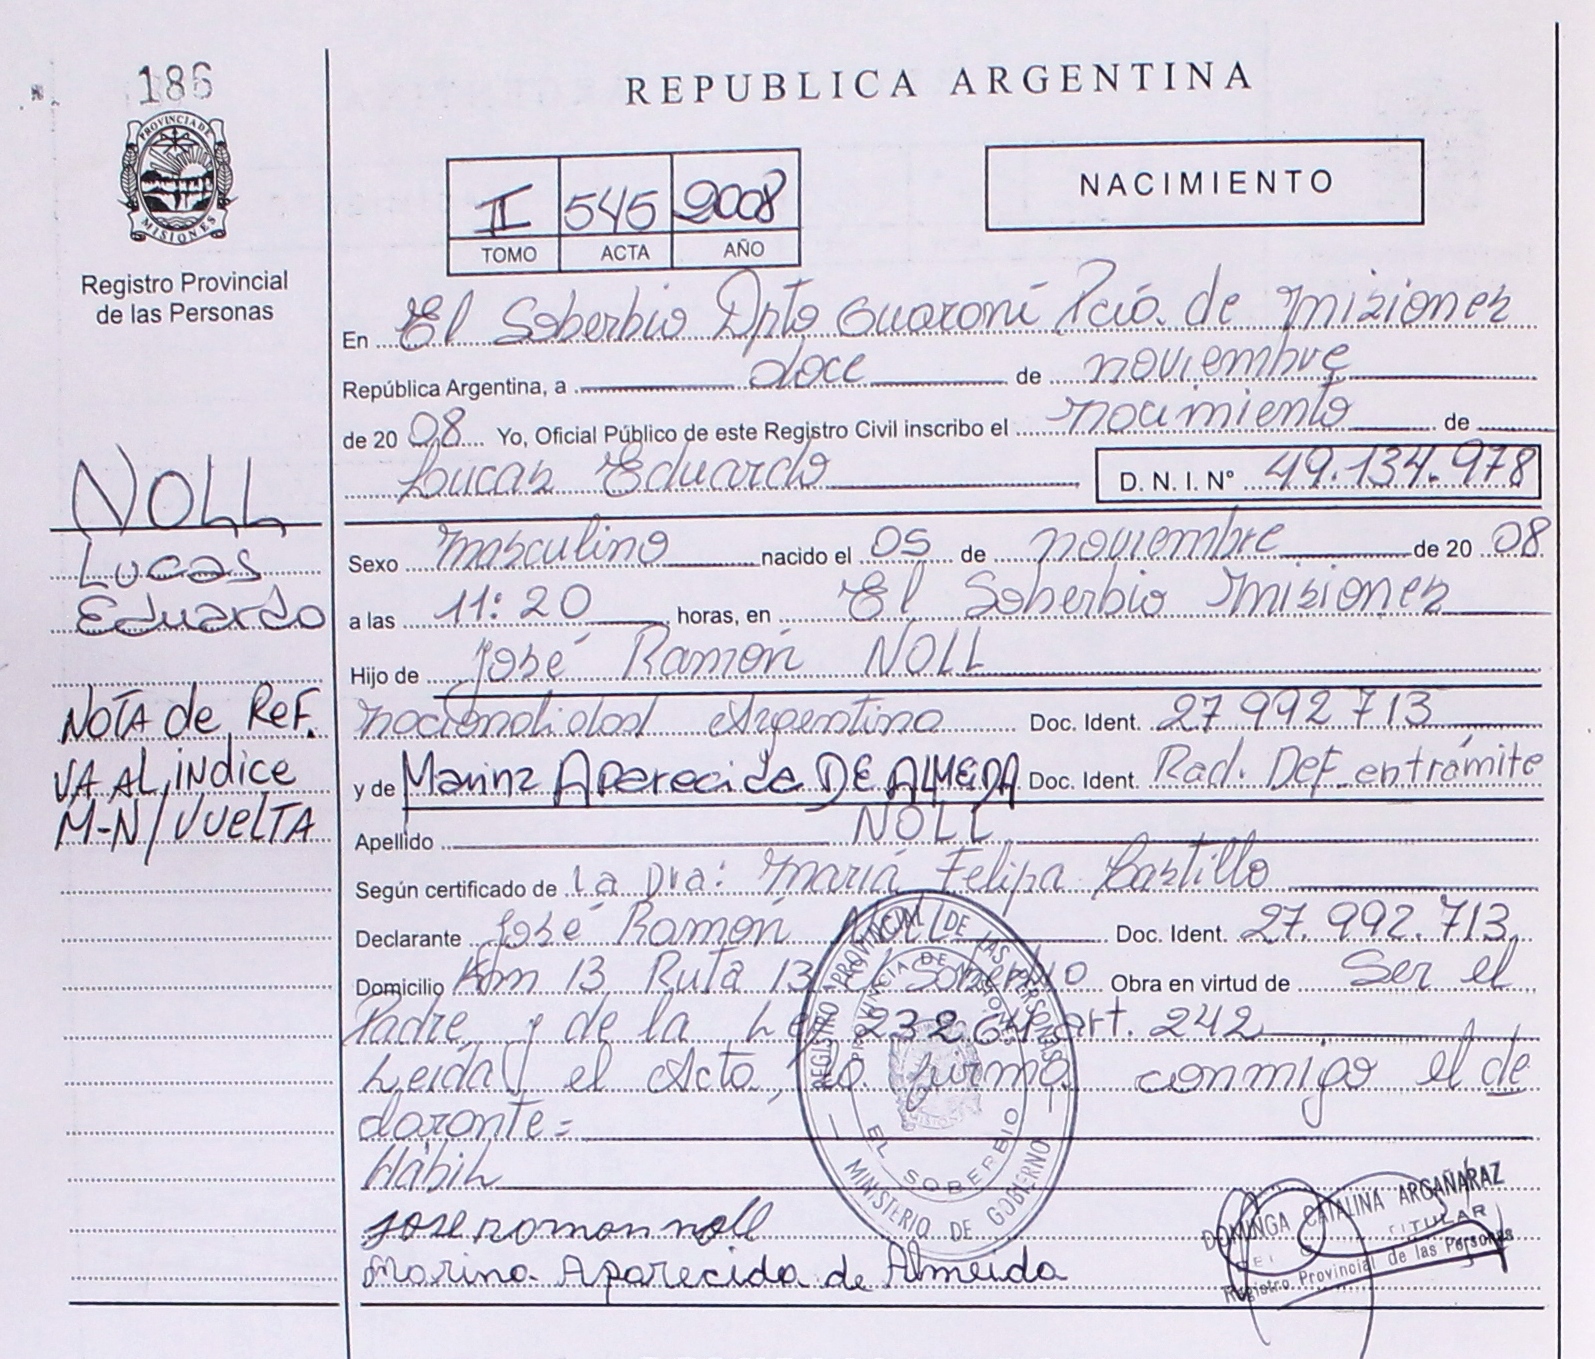 186
REPUBLICA ARGENTINA
PROVINCIA DE
MISIONES
Registro Provincial
de las Personas
II 545 2008
TOMO ACTA AÑO
NACIMIENTO
En El Soberbio Dpto Guaraní Pcia. de Misiones
República Argentina, a doce de noviembre
de 20 08 Yo, Oficial Público de este Registro Civil inscribo el nacimiento de
Lucas Eduardo D. N. I. N° 49.134.978
NOLL
Lucas
Eduardo
Sexo masculino nacido el 05 de noviembre de 20 08
a las 11:20 horas, en El Soberbio Misiones
Hijo de José Ramón NOLL
nacionalidad Argentina Doc. Ident. 27 992 713
y de Marina Aparecida DE ALMEIDA Doc. Ident. Rad. Def. en trámite
Apellido NOLL
NOTA de Ref.
VA AL índice
M-N/VUELTA
Según certificado de La Dra: María Felipa Castillo
Declarante José Ramón NOLL Doc. Ident. 27.992.713
Domicilio Km 13 Ruta 13 El Soberbio Obra en virtud de Ser el
Padre y de la Ley 23264 art. 242
Leída el Acta, la firma conmigo el de
clarante=
Hábil
Jose ramon noll
Marina Aparecida de Almeida
REGISTRO PROVINCIAL DE LAS PERSONAS
PROVINCIA DE MISIONES
EL SOBERBIO
MINISTERIO DE GOBIERNO
DOMINGA CATALINA ARGAÑARAZ
TITULAR
Registro Provincial de las Personas